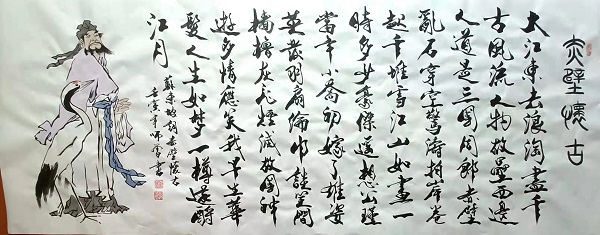 赤壁懷古
大江東去浪淘盡千
古風流人物故壘西邊
人道是三國周郎赤壁
亂石穿空驚濤拍岸卷
起千堆雪江山如畫一
時多少豪傑遥想公瑾
當年小喬初嫁了雄姿
英發羽扇綸巾談笑間
檣櫓灰飛煙滅故國神
遊多情應笑我早生華
髮人生如夢一樽還酹
江月
蘇東坡詞赤壁懷古